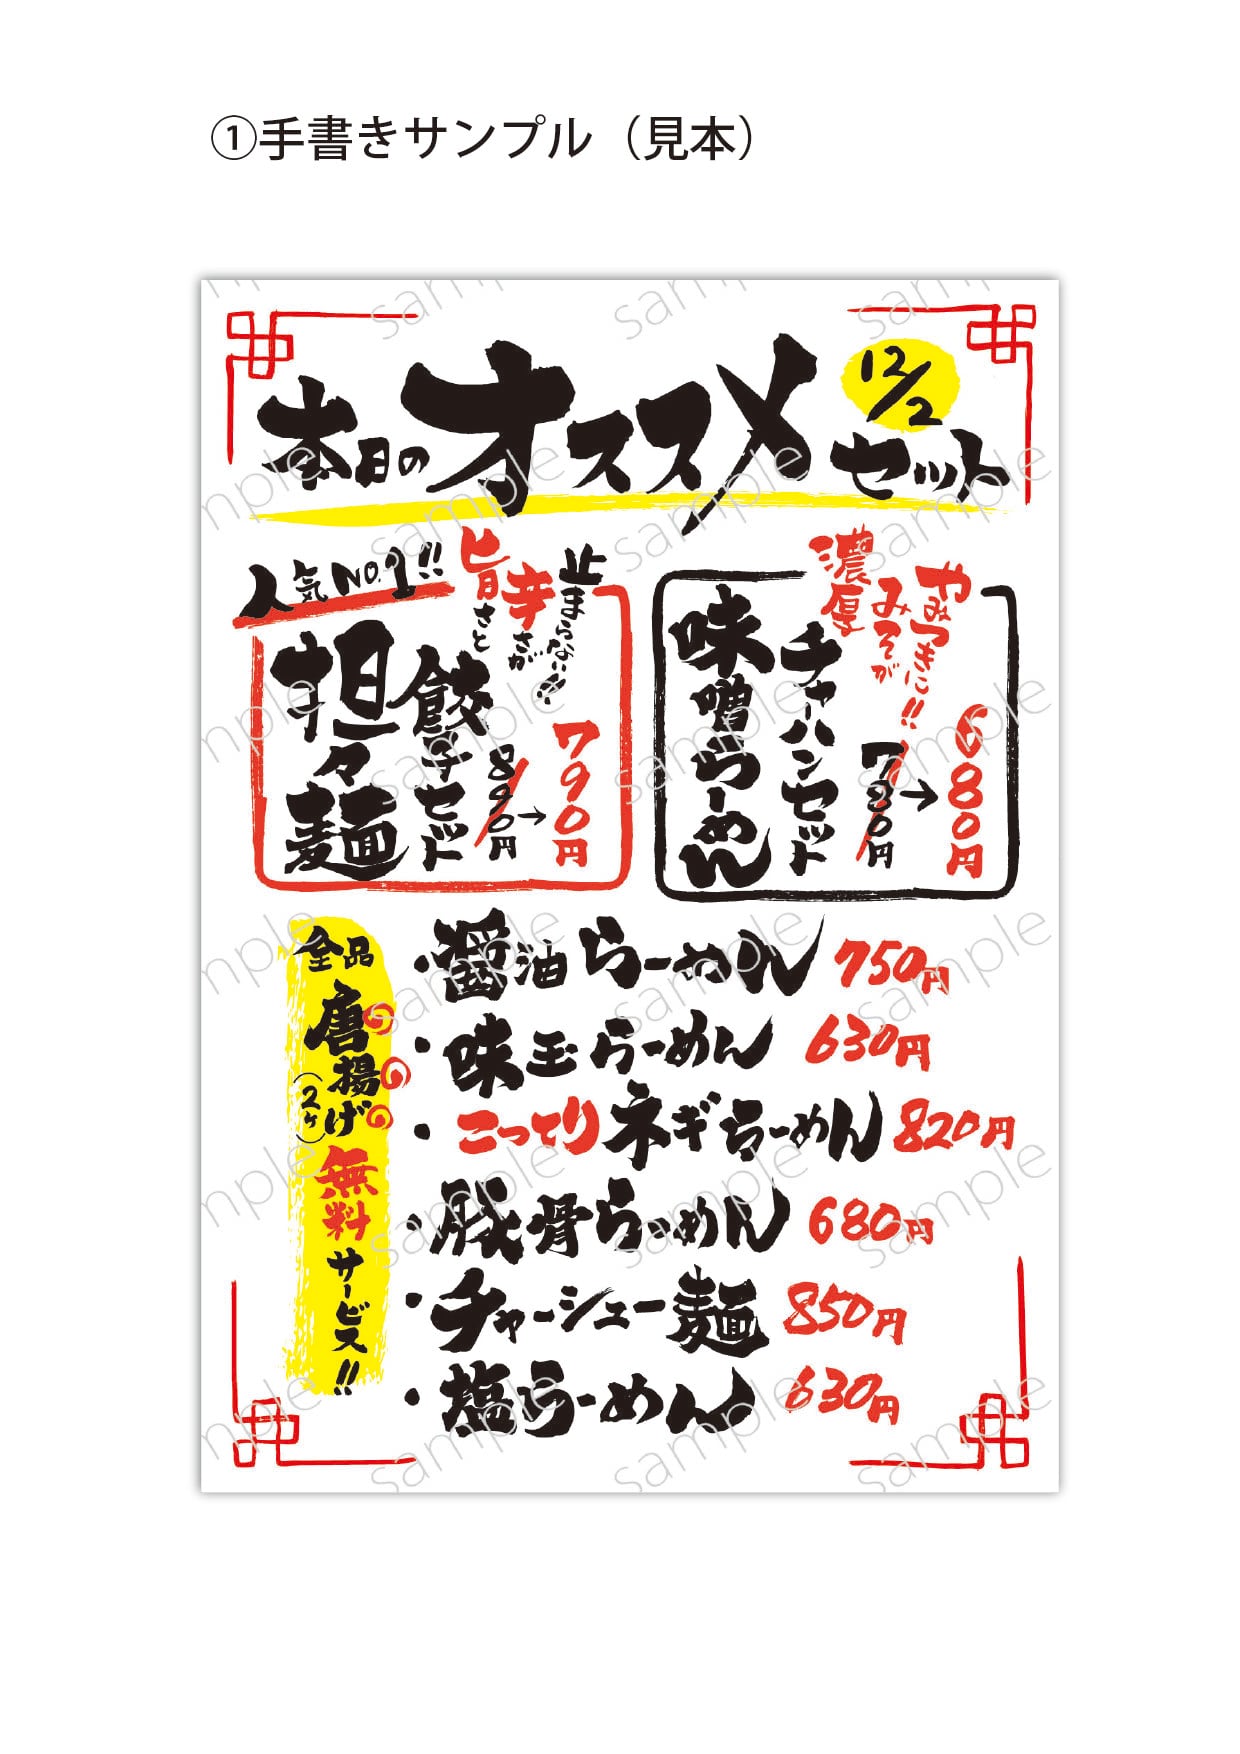 ①手書きサンプル（見本）
本日のオススメセット
12/2
人気NO.1!!
旨さと
辛さが
止まらない!!
担々麺
餃子セット
890円→790円
濃厚
みそが
やみつきに!!
味噌らーめん
チャーハンセット
780円→680円
全品
唐揚げ
(2ヶ)
無料
サービス!!
・醤油らーめん 750円
・味玉らーめん 630円
・こってりネギらーめん 820円
・豚骨らーめん 680円
・チャーシュー麺 850円
・塩らーめん 630円
sample